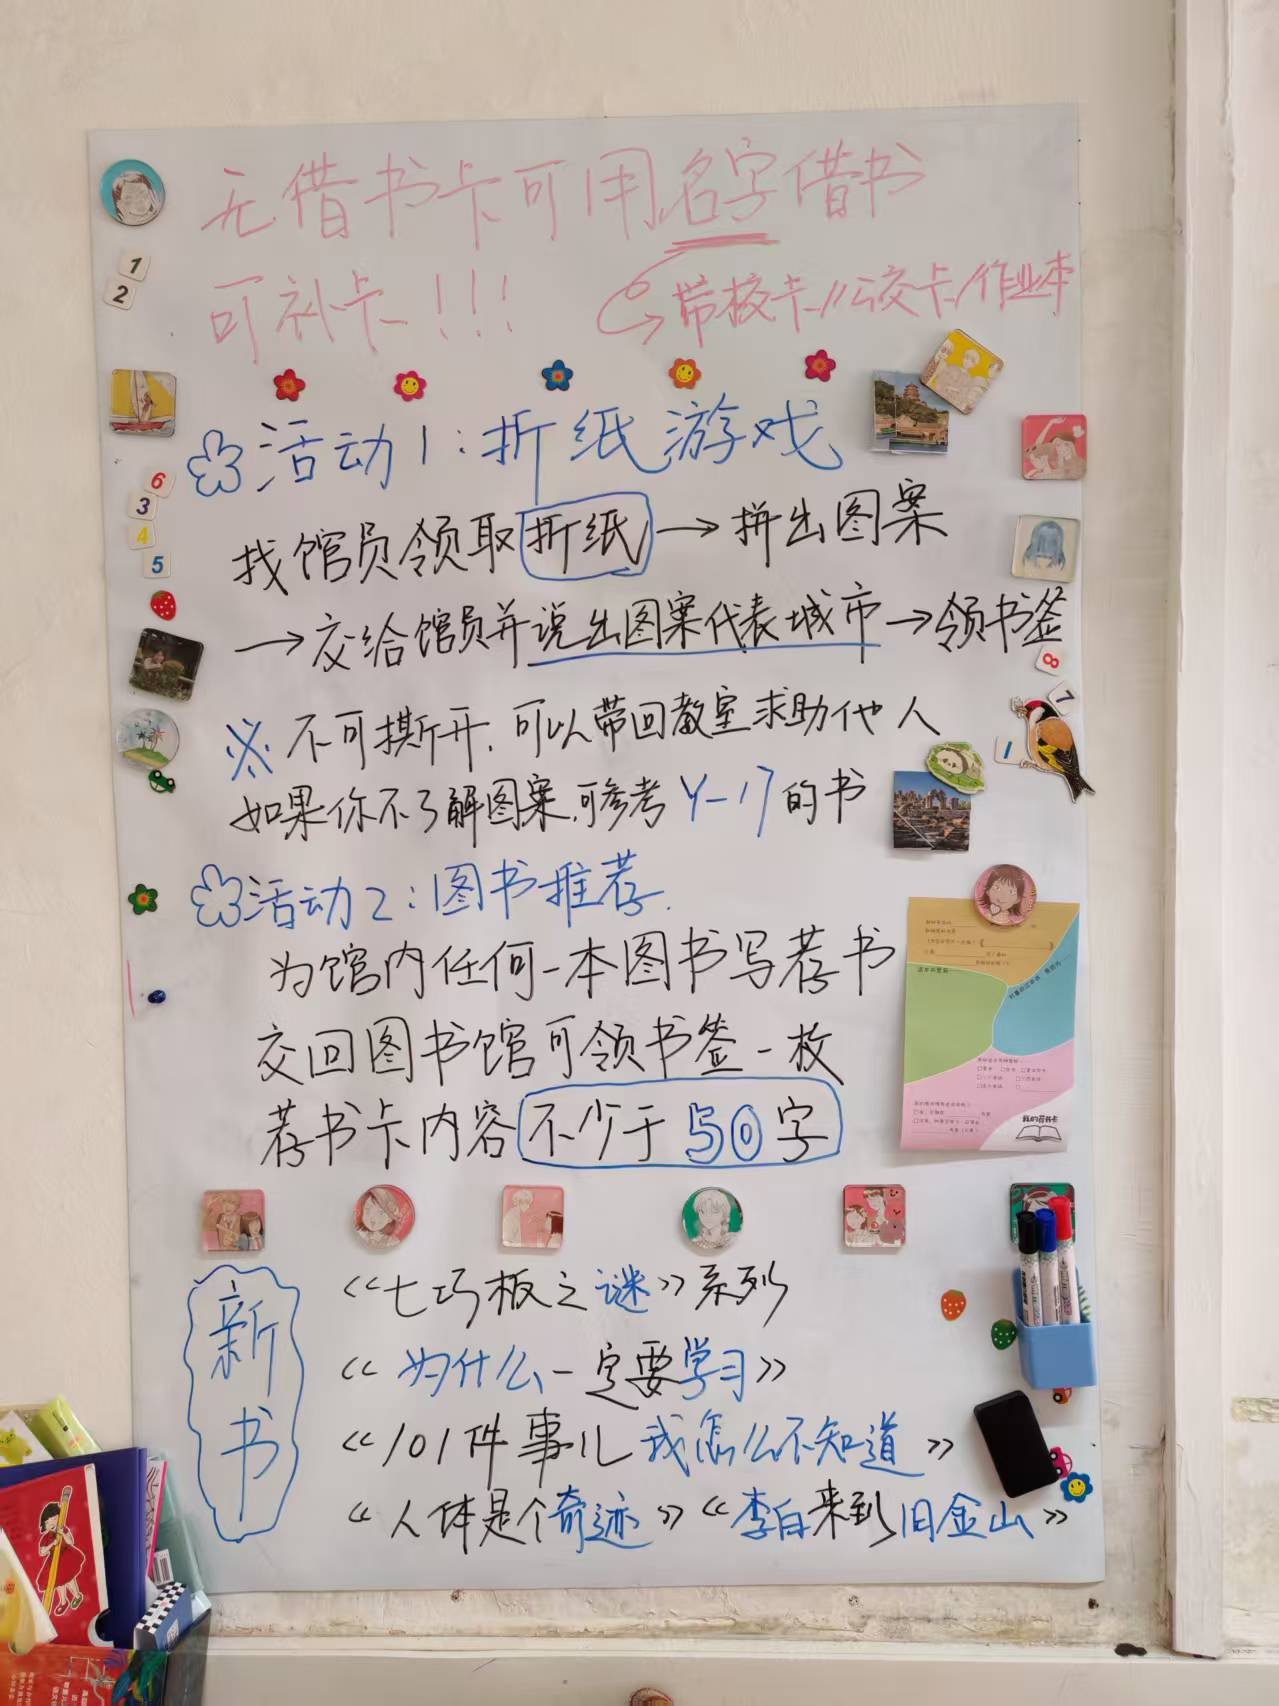 无借书卡可用名字借书
可补卡!!!
带校卡/公交卡/作业本
活动1:折纸游戏
找馆员领取折纸→拼出图案
→交给馆员并说出图案代表城市→领书签
※不可撕开,可以带回教室求助他人
如果你不了解图案,可参考Y-17的书
活动2:图书推荐.
为馆内任何一本图书写荐书
交回图书馆可领书签一枚
荐书卡内容不少于50字
我的荐书卡
新书
《七巧板之谜》系列
《为什么一定要学习》
《101件事儿我怎么不知道》
《人体是个奇迹》《李白来到旧金山》
1
2
6
3
4
5
8
7
1